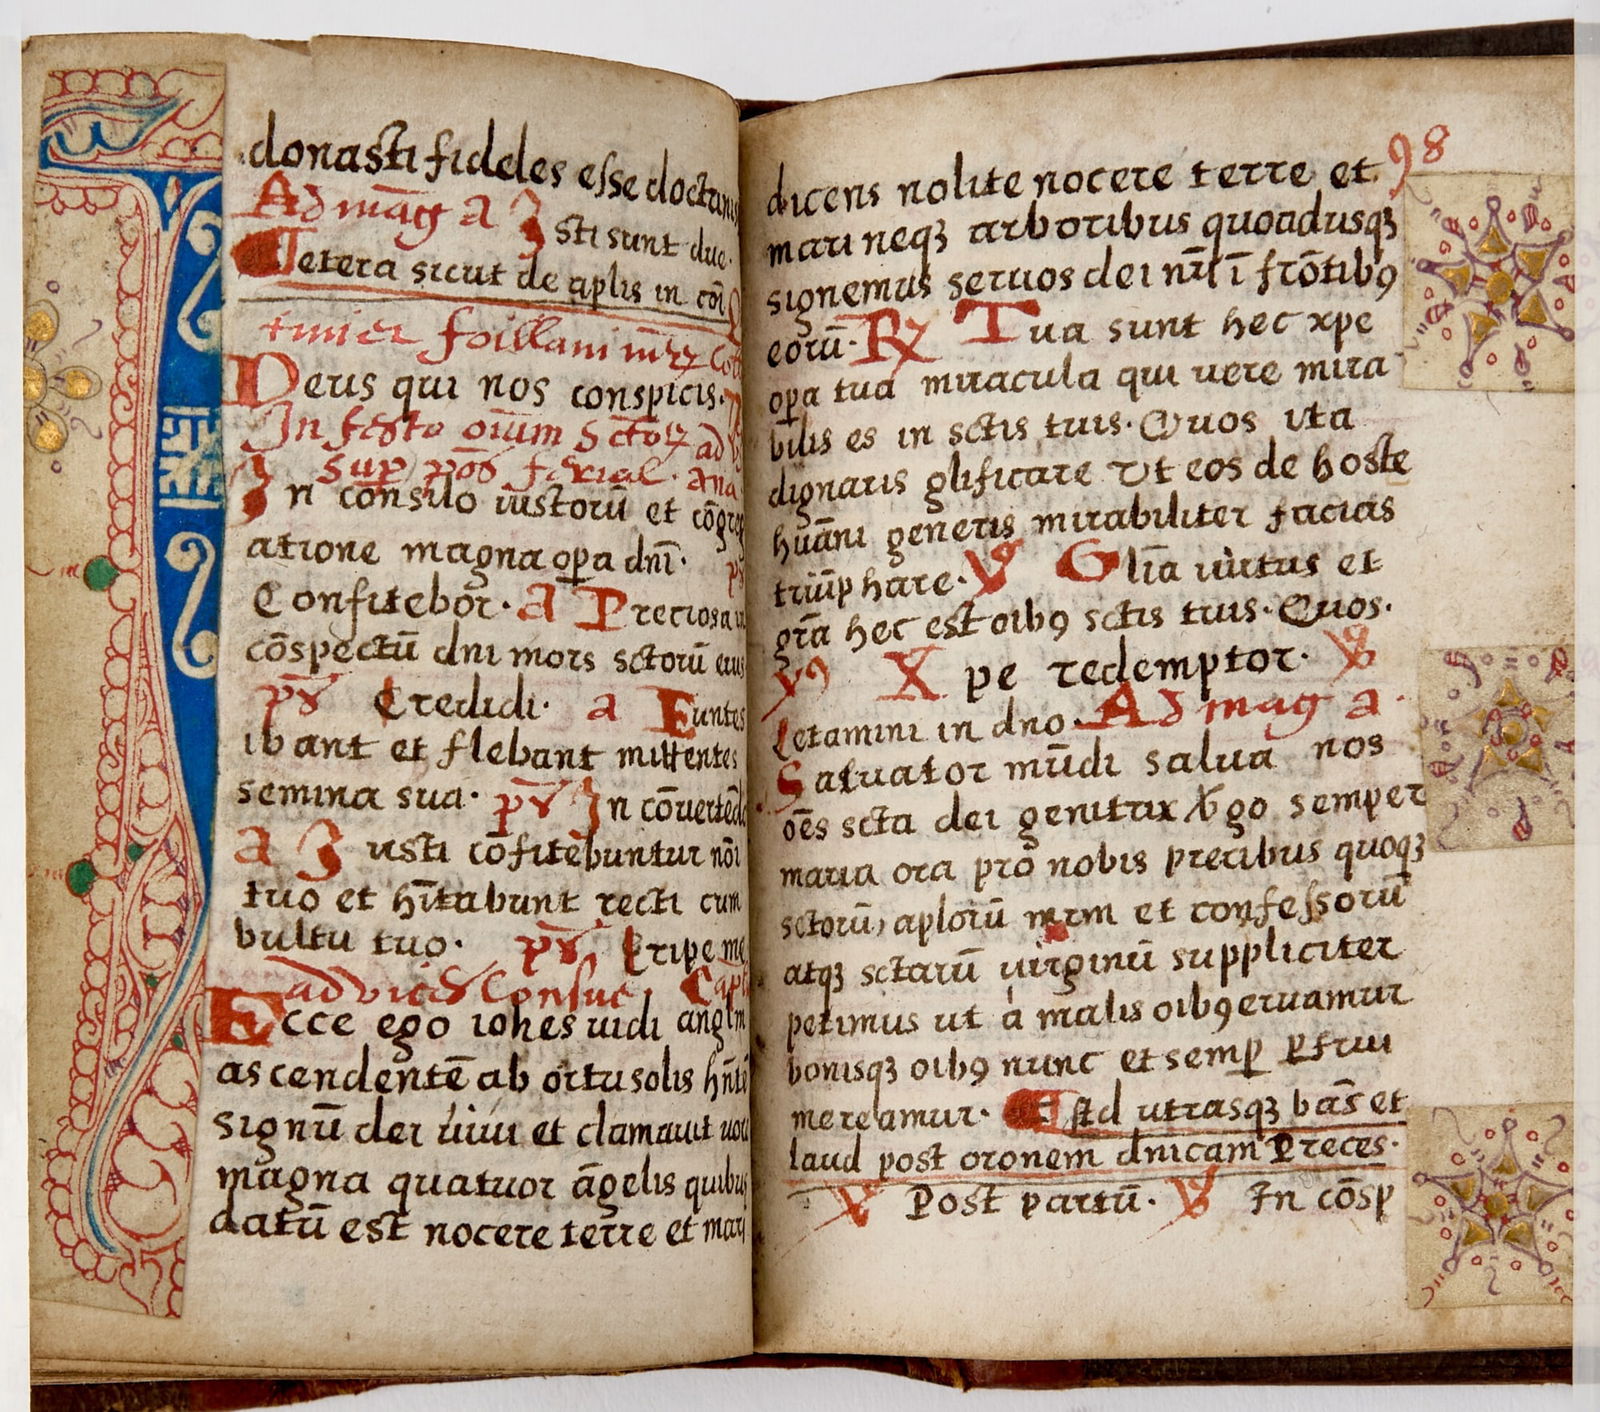 donasti fideles esse doctrinis
Ad mag̅ a Isti sunt due.
Cetera sicut de aplis in co̅i
foillani
Deus qui nos conspicis.
In festo oi̅um sctoꝝ ad
sup pos ferial. ana
In consilio iustoru̅ et co̅greg
atione magna oꝑa dn̅i. ps̅
Confitebor̅. a Preciosa in
co̅spectu̅ dni mors sctoru̅ eius
ps̅ Credidi. a Euntes
ibant et flebant mittentes
semina sua. ps̅ In co̅uerte̅do
a Iusti co̅fitebuntur no̅i
tuo et hi̅tabunt recti cum
bultu tuo. ps̅ Eripe me
ad Capl
Ecce ego iohes uidi anglm
ascendente̅ ab ortu solis hn̅te̅
signu̅ dei uiui et clamauit uoce
magna quatuor a̅gelis quibus
datu̅ est nocere terre et mari
98
dicens nolite nocere terre et
mari neqꝫ arboribus quoadusqꝫ
signemus seruos dei nr̅i i̅ fro̅tibꝯ
eoru̅. ℞ Tua sunt hec xpe
oꝑa tua miracula qui uere mira
bilis es in sctis tuis. Quos ita
dignaris glificare Ut eos de hoste
hua̅ni generis mirabiliter facias
triu̅phare. ℣ Gli̅a uirtus et
gr̅a hec est oibꝯ sctis tuis. Quos.
yꝯ Xpe redemptor. ℣
Letamini in dno. Ad mag a.
Saluator mu̅di salua nos
oe̅s scta dei genitrix v̅go semper
maria ora pro nobis precibus quoqꝫ
sctoru̅ aploru̅ mrm et confessoru̅
atqꝫ sctaru̅ uirginu̅ suppliciter
petimus ut a malis oibꝯ eruamur
bonisqꝫ oibꝯ nunc et semꝑ ꝑfrui
mereamur. Ad utrasqꝫ ba̅s et
laud post oronem dnicam Preces.
℣ Post partu̅. ℣ In co̅sp